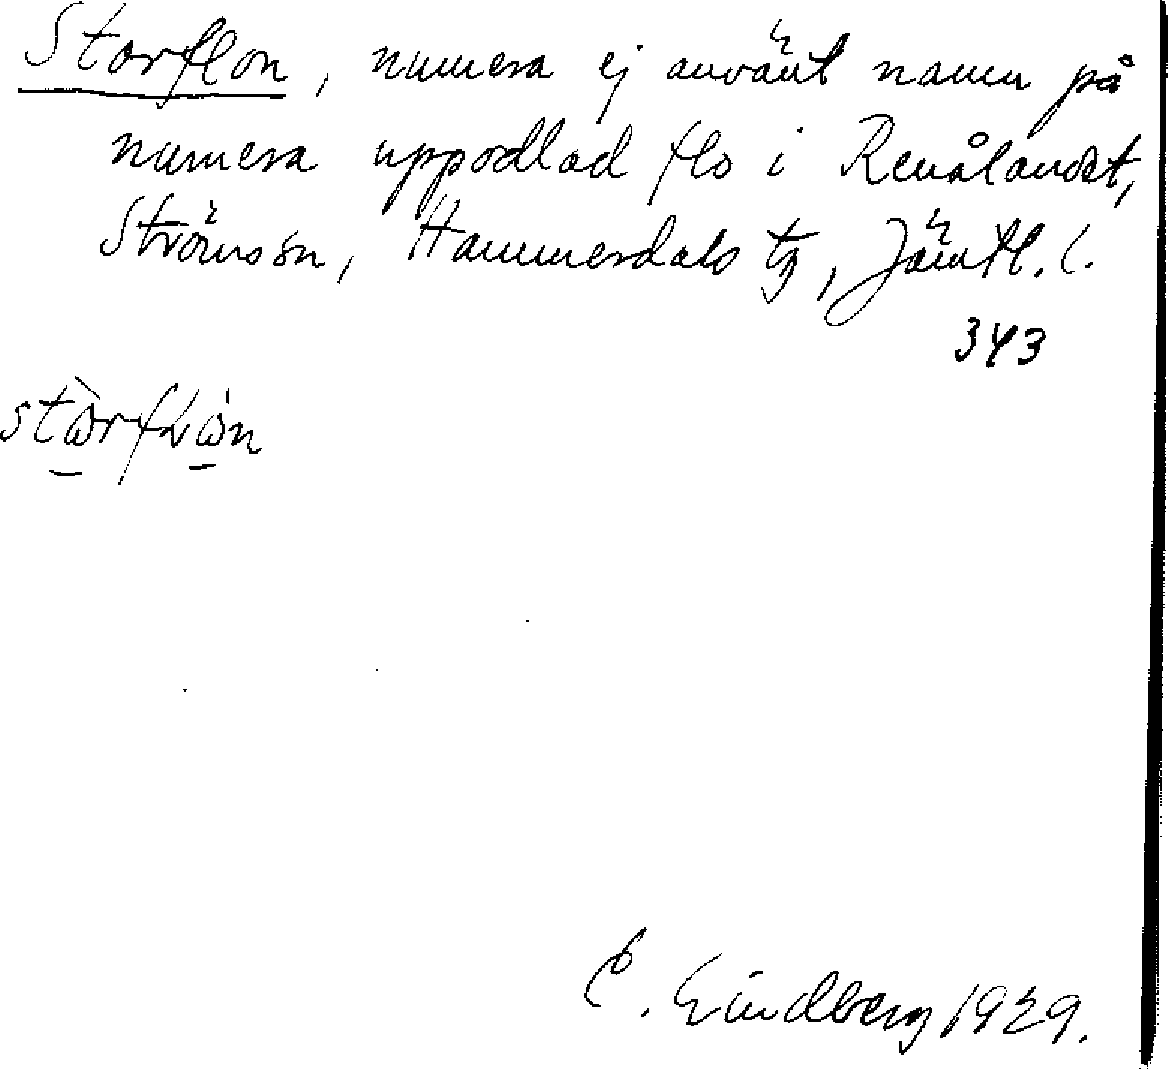 Storflon, numera ej använt namn på
numera uppodlad flo i Renålandet,
Ströms sn, Hammerdals tg, Jämtl. l.
343
E. Lindberg 1929.